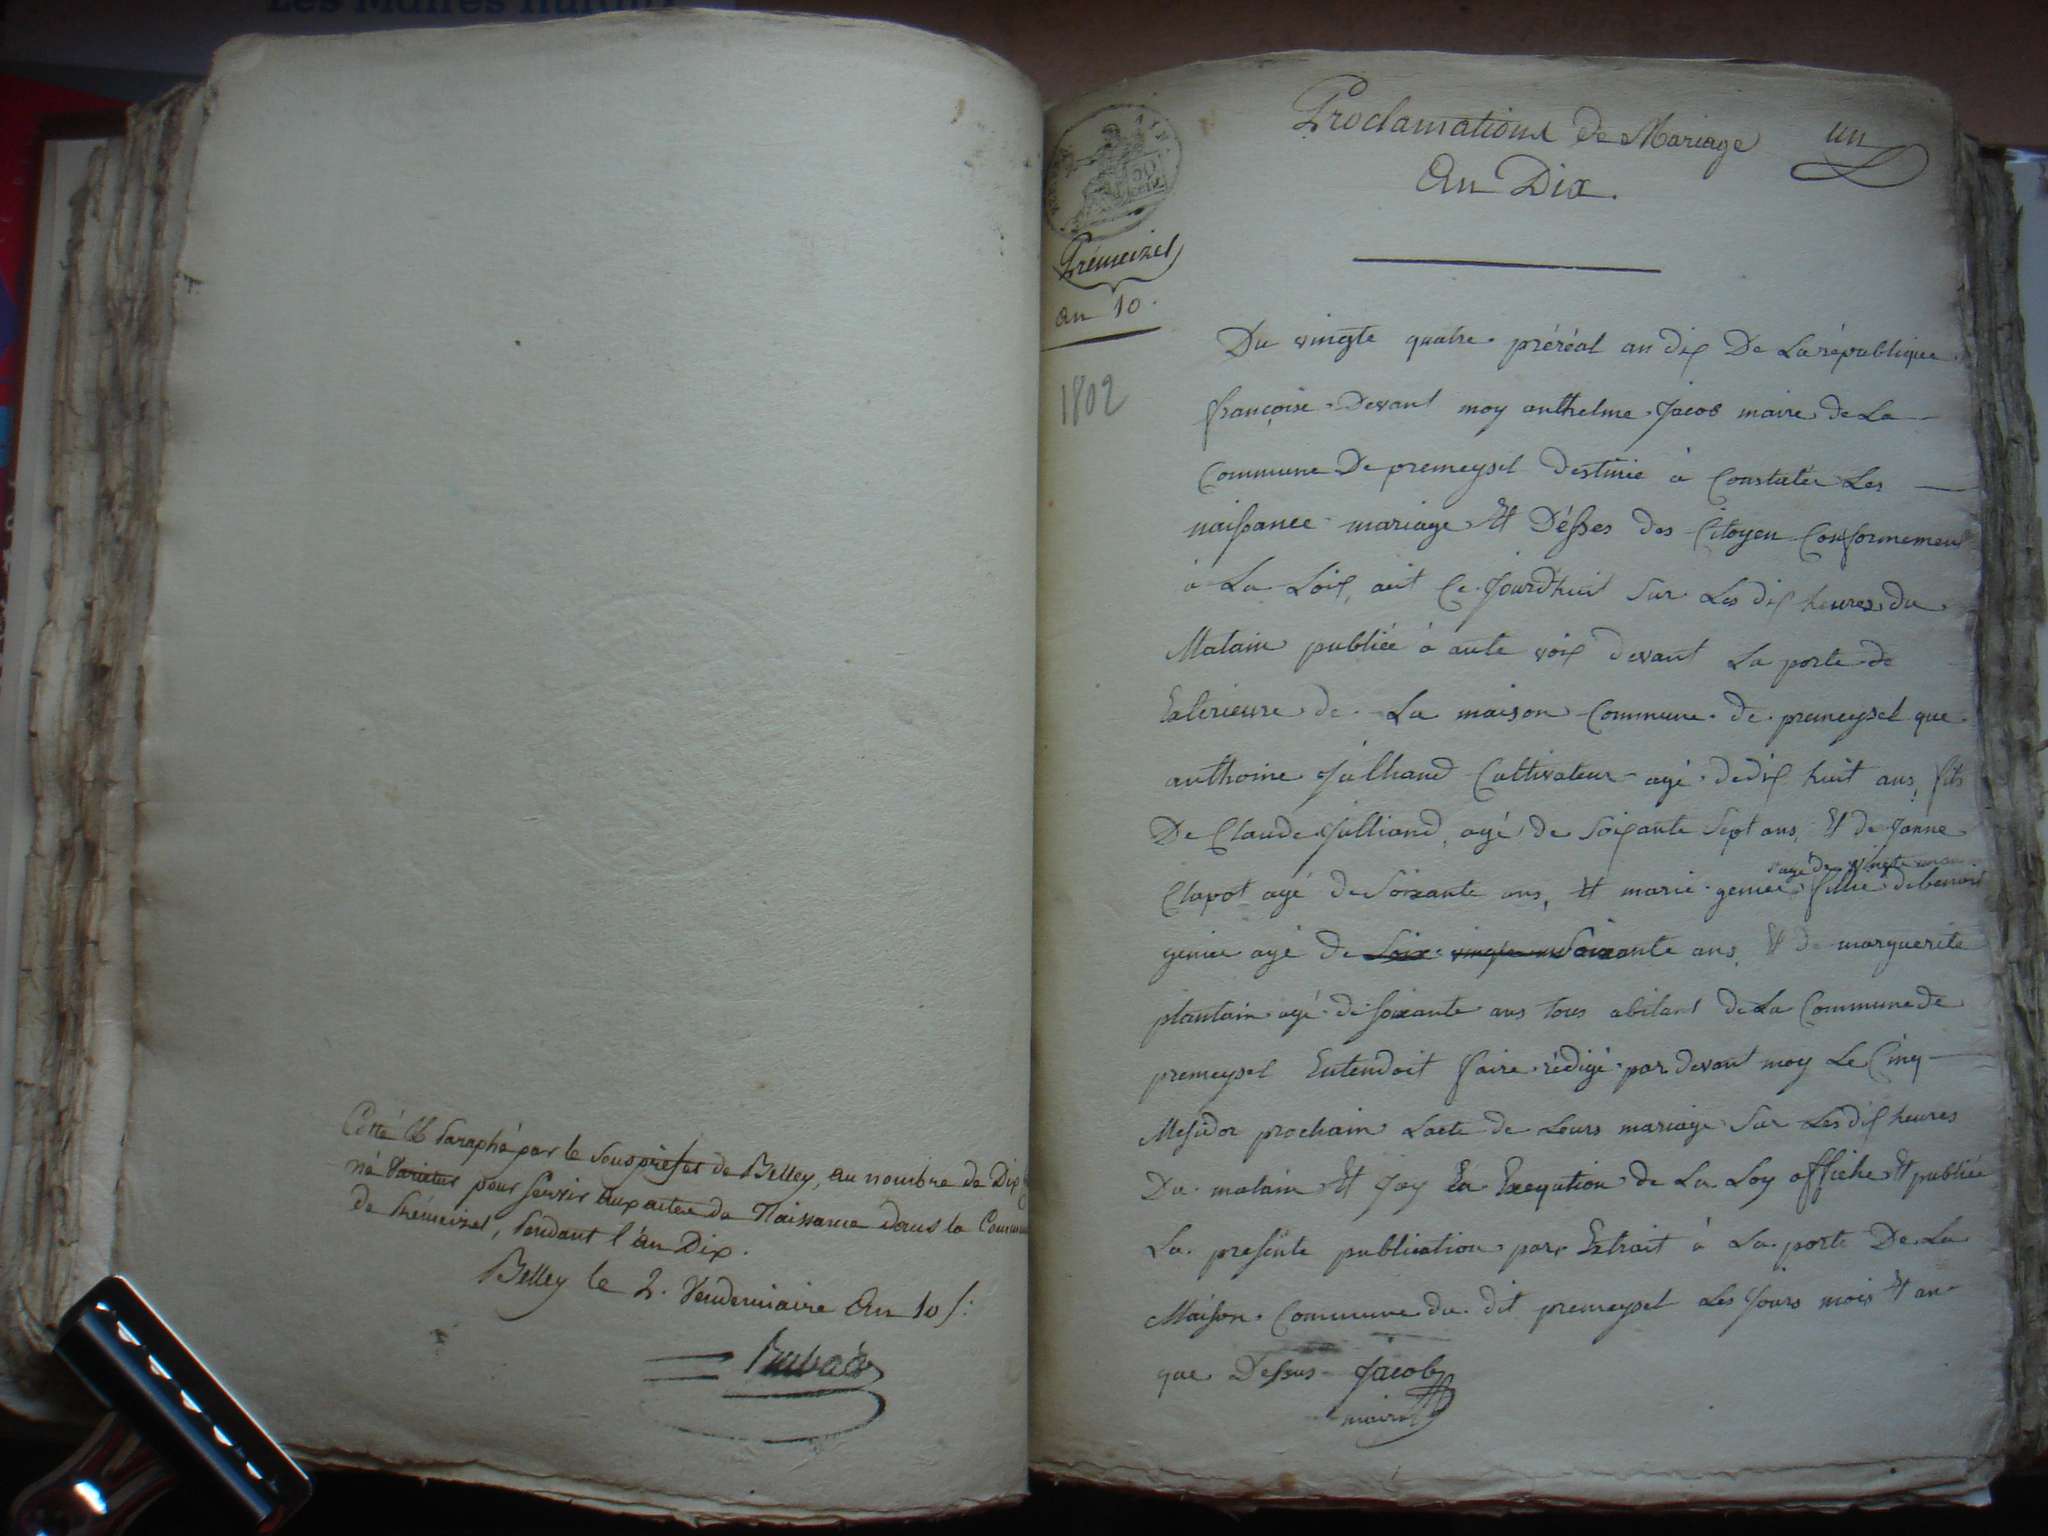 Cotté et Paraphé par le Souspréfet de Belley, au nombre de Dix
né Varietur pour servir aux actes de Naissance dans la Commune
de Prémeizel, Pendant l'an Dix.
Belley le 2. Vendemiaire An 10 /:
Proclamations de Mariage
un
An Dix.
Prémeizel
an 10.
1802
Du vingte quatre préréal an dix De La république
françoise Devant moy anthelme Jacob maire de La
Commune De premeysel destinée à Constater Les
naissance mariage Et Désses des Citoyen Conformement
à La Loix, ait Ce Jourdhui Sur Les dix heures du
Matain publiée à aute voix devant La porte de
Exterieure de La maison Commune de premeysel que
anthoine Julliand Cultivateur agé de dix huit ans, fils
De Claude Julliand, agé de Soixante Sept ans, Et de Janne
Clapot agé de Soixante ans, Et marie geniee fillie de benoit
agé de vingte
geniee agé de Soix vingte Soixante ans, Et de marguerite
plantain agé de soixante ans tous abitant de La Commune de
premeysel Entendoit faire rédigé par devant moy Le Cinq
Mesidor prochain Lacte de Leurs mariage Sur Les dix heures
Du matain Et Jay En Exeqution de La Loy affiche Et publiée
La presente publication par Extrait à La porte De La
Maison Commune du dit premeysel Les Jours mois Et an
que Dessus Jacob
maire